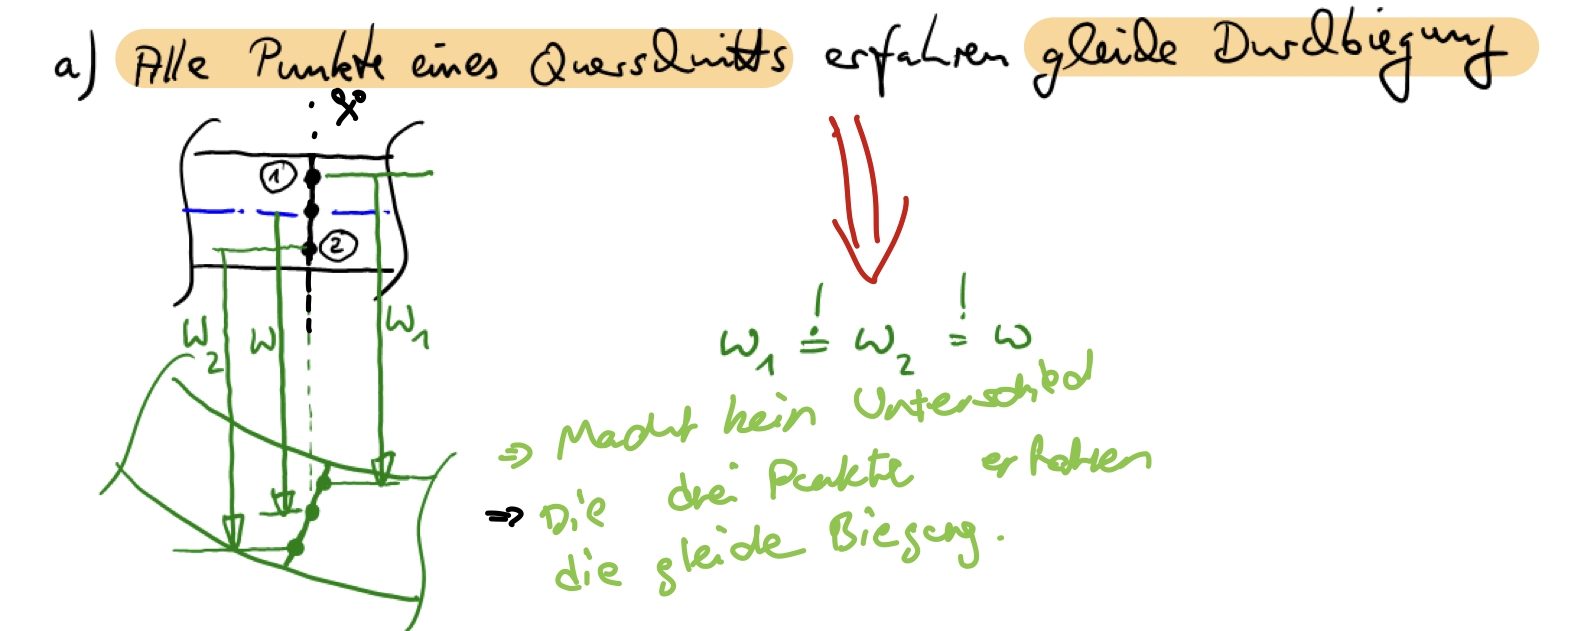 a) Alle Punkte eines Querschnitts erfahren gleiche Durchbiegung
x
1
2
w₂ w w₁
w₁ =! w₂ =! w
⇒ Macht kein Unterschied
⇒ Die drei Punkte erfahren
die gleiche Biegung.